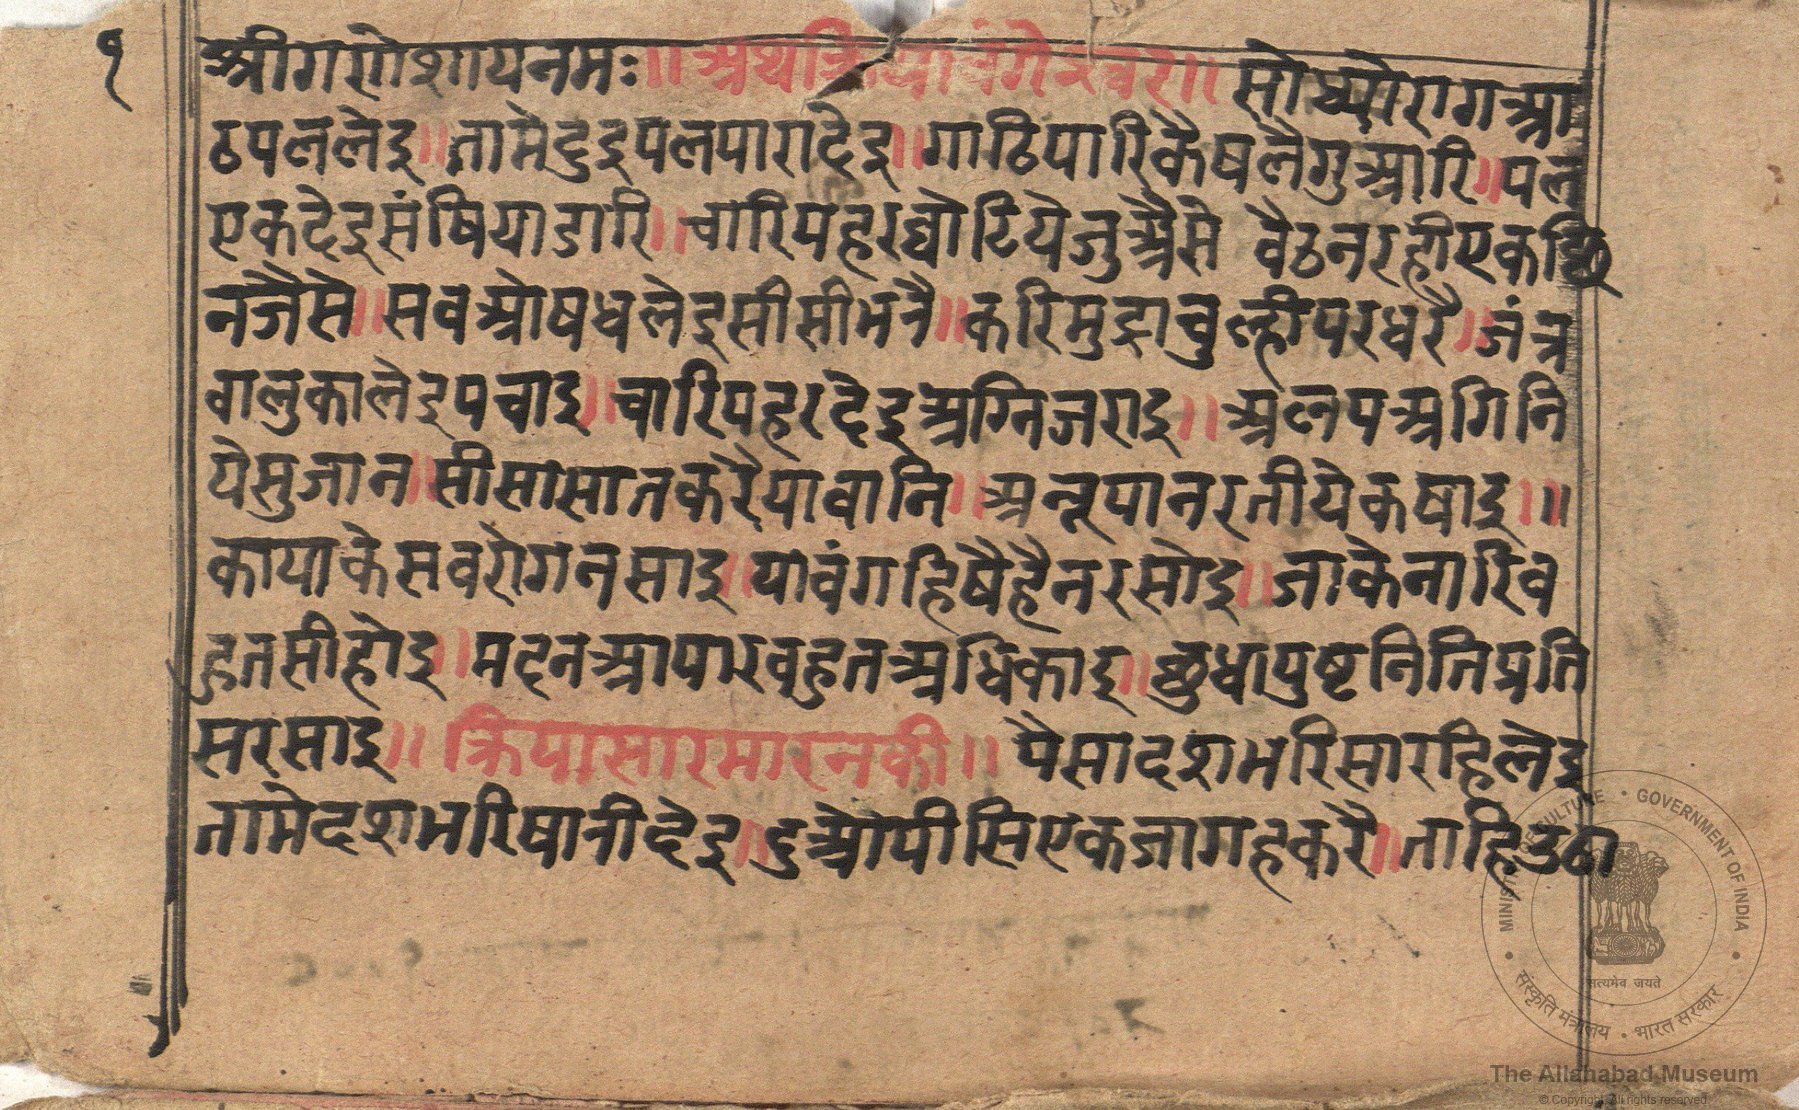 १
श्रीगणेशायनमः॥अथक्रियावंगेस्वर॥ सोध्योरागआ
ठपललेइ॥तामेदुइपलपारादेइ॥गाठिपारिकैषलैगुआरि॥पल
एकदेइसंषियाडारि॥चारिपहरघोटियेजुअैसे वैठनरहीएकछि
नजैसे॥सवओषधलेइसीसीभनै॥करिमुद्राचुल्हीपरधरै॥जंत्र
वालुकालेइपचाइ॥चारिपहरदेइअग्निजराइ॥अलपअगिनि
येसुजान॥सीसासातकरैयावानि॥अन्नूपानरतीयेकषाइ॥॥
कायाकेसवरोगनसाइ॥यावंगहिषैहैनरसोइ॥जाकेनारिव
हुतसीहोइ॥मदनआपारवहुतअधिकाइ॥छुधापुष्टनितिप्रति
सरसाइ॥क्रियासारमारनकी॥पैसादशभरिसारहिलेइ
तामेदशभरिषानीदेइ॥दुओपीसिएकजागहकरै॥ताहिउठा
MINISTRY OF CULTURE • GOVERNMENT OF INDIA
सत्यमेव जयते
संस्कृति मंत्रालय • भारत सरकार
The Allahabad Museum
© Copyright. All rights reserved